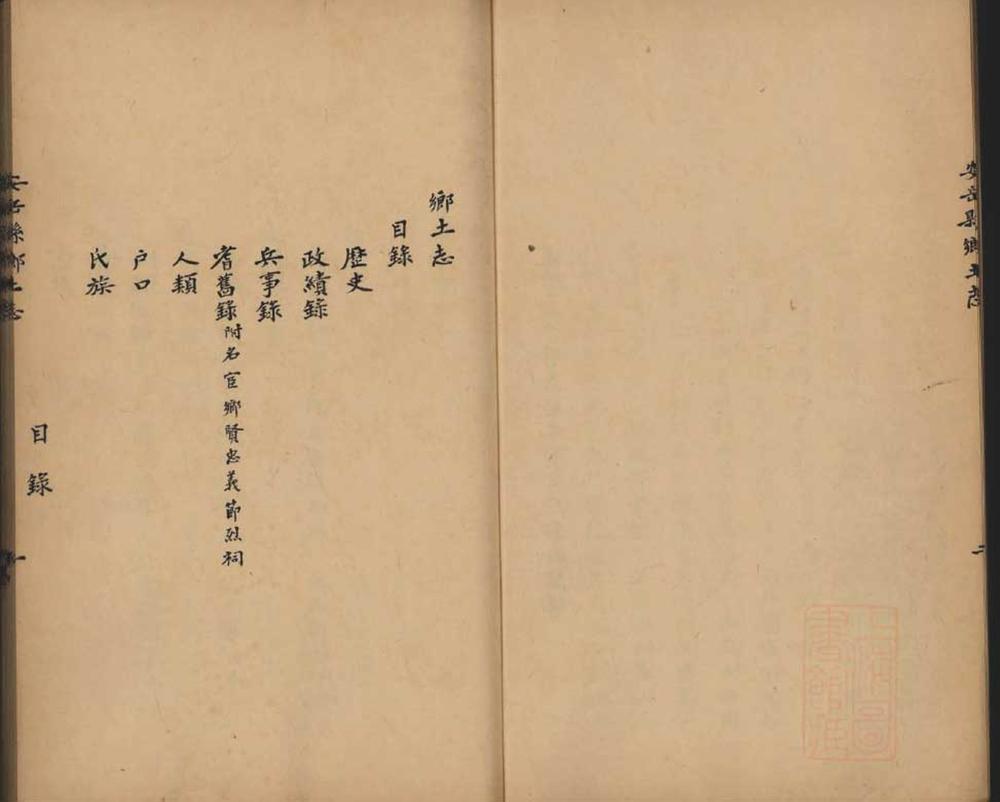 安岳縣鄉土志
二
上海圖書館藏
鄉土志
目錄
歷史
政績錄
兵事錄
耆舊錄附名宦鄉賢忠義節烈祠
人類
户口
氏族
安岳縣鄉土志
目錄
一